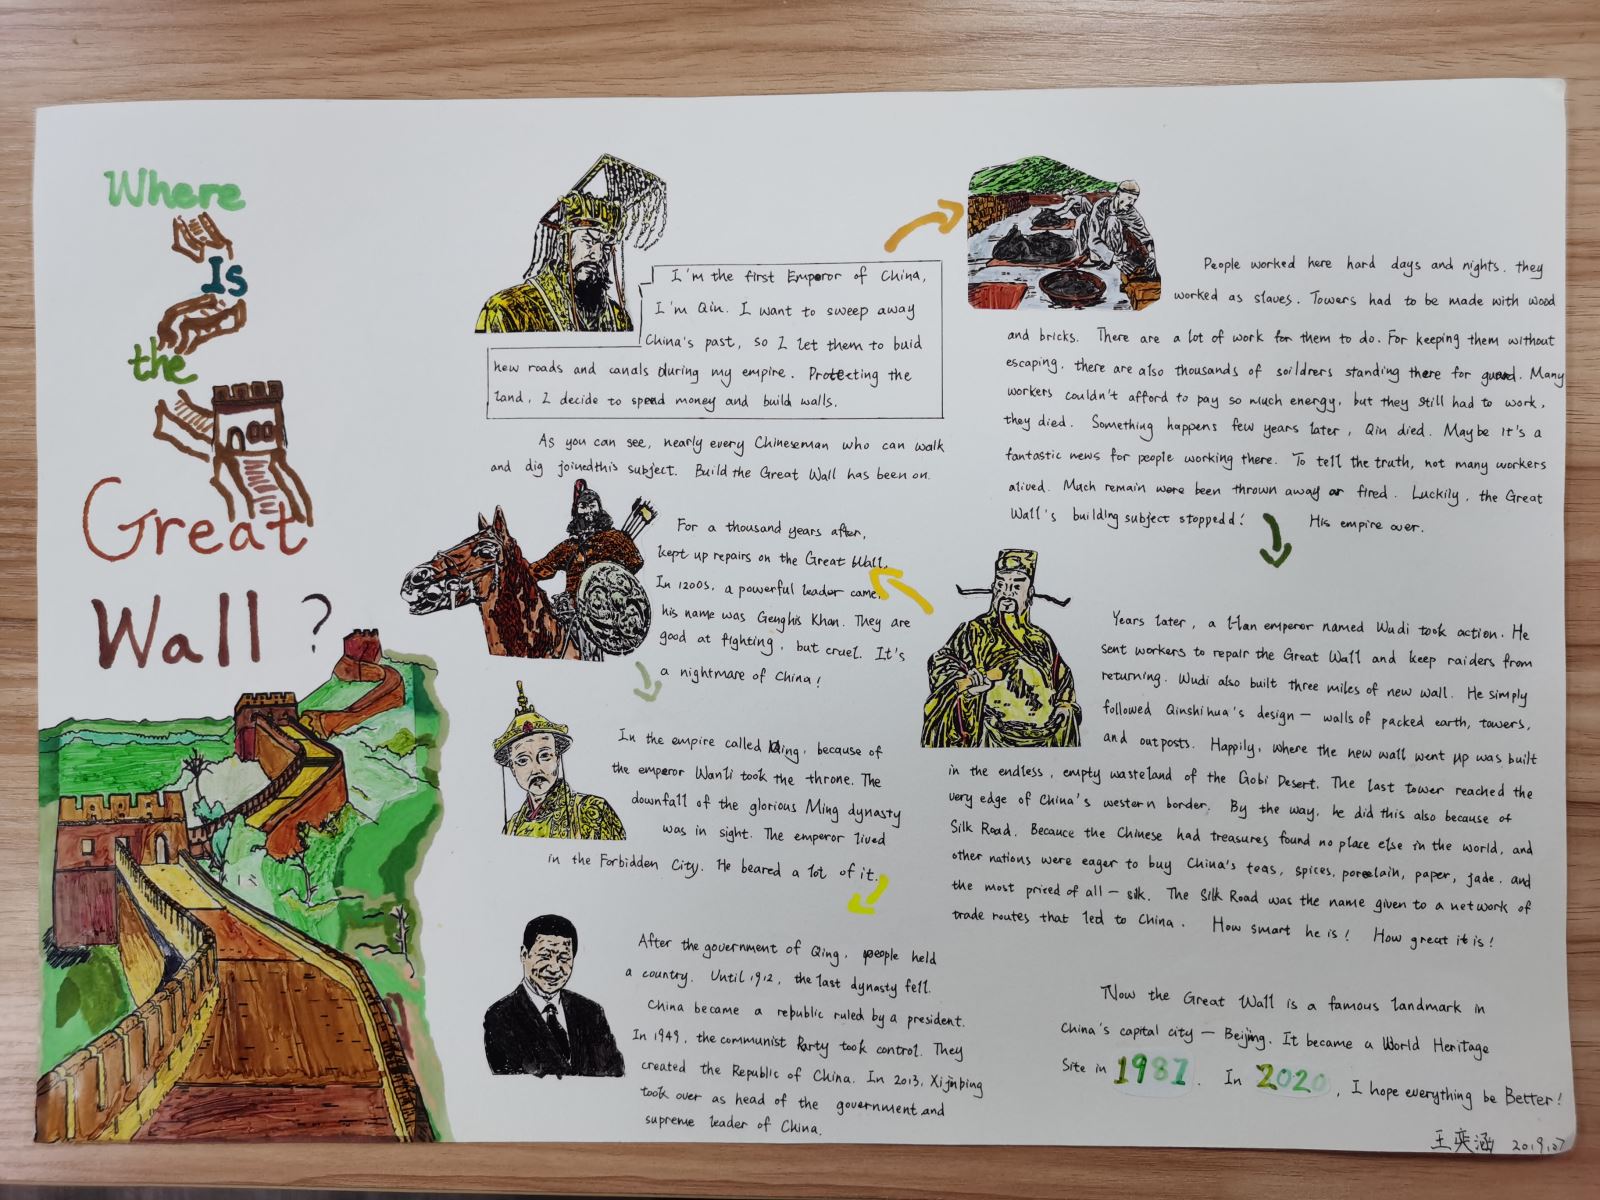 Where
Is
the
Great
Wall?
I'm the first Emperor of China,
I'm Qin. I want to sweep away
China's past, so I let them to buid
new roads and canals during my empire. Protecting the
land, I decide to spend money and build walls.
As you can see, nearly every Chineseman who can walk
and dig joined this subject. Build the Great Wall has been on.
People worked here hard days and nights. they
worked as slaves. Towers had to be made with wood
and bricks. There are a lot of work for them to do. For keeping them without
escaping, there are also thousands of soildrers standing there for guard. Many
workers couldn't afford to pay so much energy, but they still had to work,
they died. Something happens few years later, Qin died. Maybe it's a
fantastic news for people working there. To tell the truth, not many workers
alived. Much remain were been thrown away or fired. Luckily, the Great
Wall's building subject stoppedd! His empire over.
Years later, a Han emperor named Wudi took action. He
sent workers to repair the Great Wall and keep raiders from
returning. Wudi also built three miles of new wall. He simply
followed Qinshihua's design — walls of packed earth, towers,
and outposts. Happily, where the new wall went up was built
in the endless, empty wasteland of the Gobi Desert. The last tower reached the
very edge of China's western border. By the way, he did this also because of
Silk Road. Becauce the Chinese had treasures found no place else in the world, and
other nations were eager to buy China's teas, spices, porcelain, paper, jade, and
the most priced of all — silk. The Silk Road was the name given to a network of
trade routes that led to China. How smart he is! How great it is!
For a thousand years after,
kept up repairs on the Great Wall.
In 1200s, a powerful leader came,
his name was Genghis Khan. They are
good at fighting, but cruel. It's
a nightmare of China!
In the empire called Ming, because of
the emperor Wanli took the throne. The
downfall of the glorious Ming dynasty
was in sight. The emperor lived
in the Forbidden City. He beared a lot of it.
After the government of Qing, people held
a country. Until 1912, the last dynasty fell.
China became a republic ruled by a president.
In 1949, the communist Party took control. They
created the Republic of China. In 2013, Xi jinping
took over as head of the government and
supreme leader of China.
Now the Great Wall is a famous landmark in
China's capital city — Beijing. It became a World Heritage
Site in 1987. In 2020, I hope everything be Better!
王奕涵 2019.07